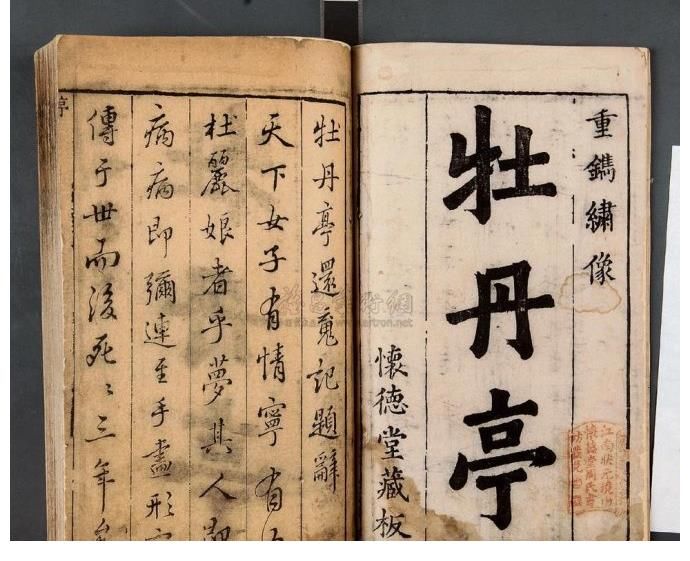 重鐫繡像
牡丹亭
懷德堂藏板
牡丹亭還魂記題辭
天下女子有情寧有
杜麗娘者乎夢其人
病病即彌連至手畫形
傳于世而後死死三年
亭